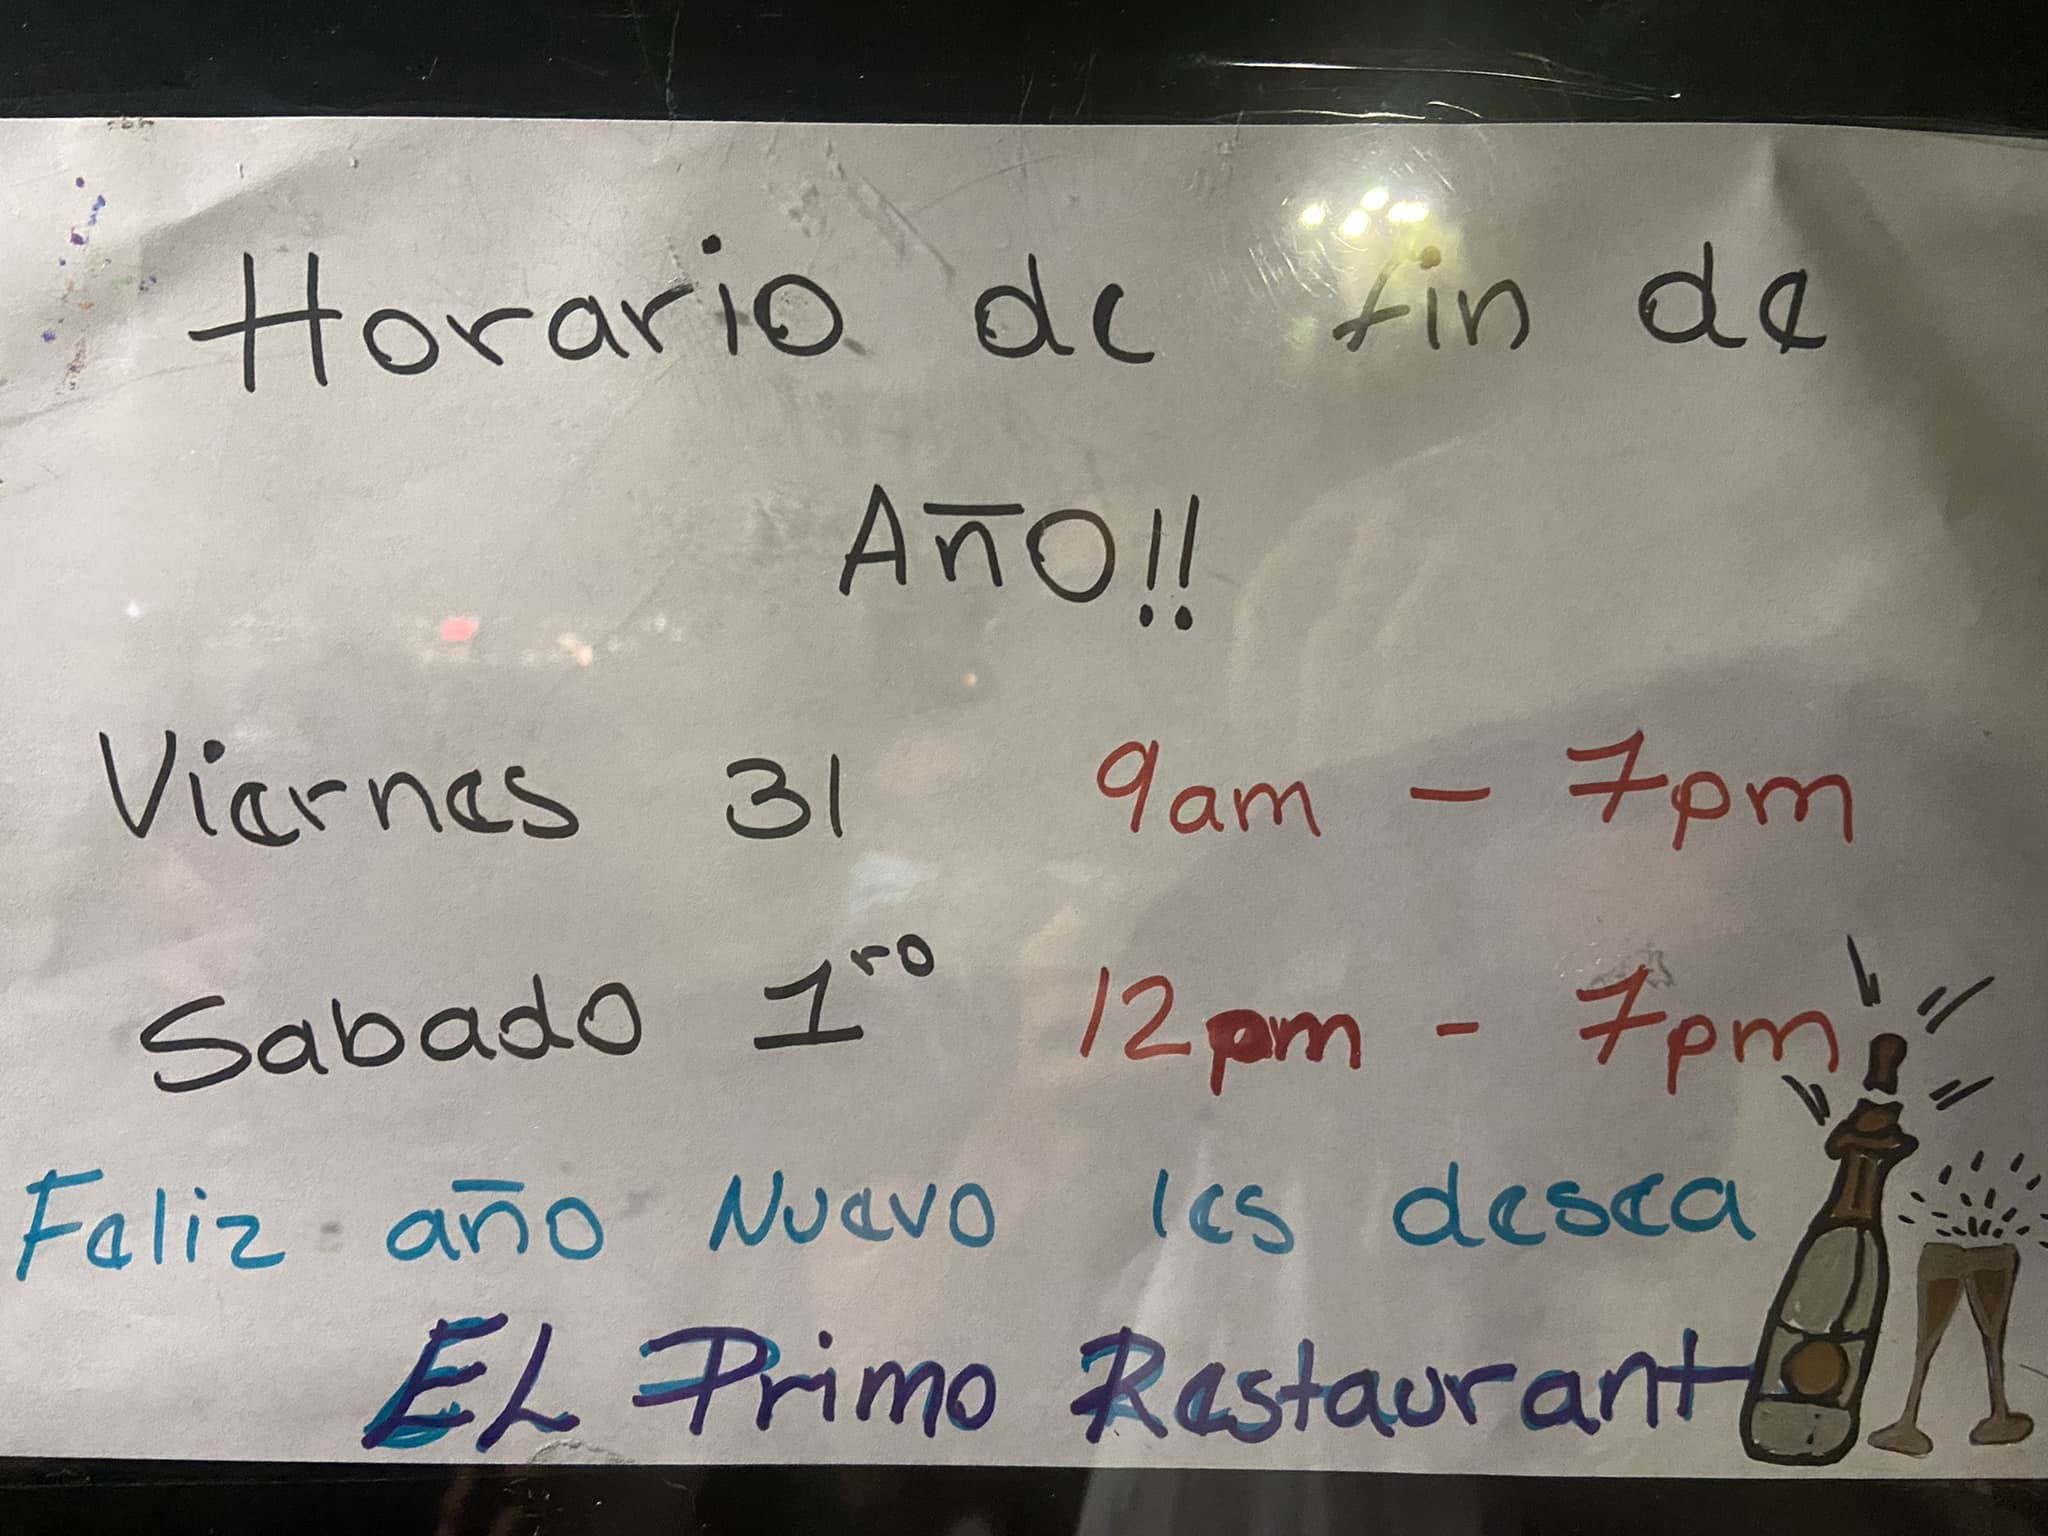 Horario de fin de
Año!!
Viernes 31 9am - 7pm
Sabado 1ro 12pm - 7pm
Feliz año Nuevo les desea
EL Primo Restaurant